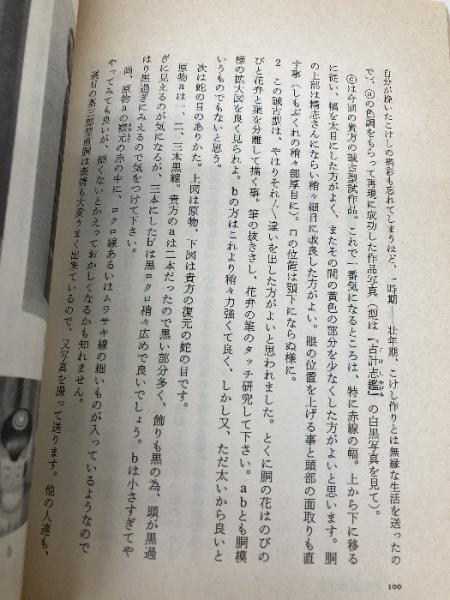 自分が挽いたこけしの描彩も忘れてしまうほど、一時期――壮年期、こけし作りとは無縁な生活を送ったの
で、ⓐの色調をもらって再現に成功した作品写真（型は『古計志鑑』の白黒写真を見て）。
ⓒは今回の貴方の誠古型試作品。これで一番気になるところは、特に赤線の幅。上から下に移る
に従い、幅を太目にした方がよく、またその間の黄色の部分を少なくした方がよいと思います。胴
の上部は精志さんにならい稍々細目に改良した方がよい。眼の位置を上げる事と頭部の面取りも直
す事（しもぶくれの稍々部厚目に）。冂の位置は顎下にならぬ様に。
2 この誠古型は、やはりそれ〲違いを出した方がよいと思われました。とくに胴の花はのびの
びと花弁と葉を分離して描く事。筆の抜きさし、花弁の筆のタッチ研究して下さい。abとも胴模
様の拡大図を良く見られよ。bの方はこれより稍々力強くて良く、しかし又、ただ太いから良いと
いうものでもないと思う。
次は蛇の目のありかた。上図は原物、下図は貴方の復元の蛇の目です。
原物aは、一、二、三本黒線。貴方のaは二本だったので黒い部分多く、飾りも黒の為、頭が黒過
ぎに見えるのが気になるが、三本にしたb'は黒ロクロ稍々広めで良いでしょう。bは小さすぎてや
はり黒過ぎにみえるので気をつけて下さい。
尚、原物aの襟元の赤の中に、ロクロ線あるいはムラサキ線の細いものが入っているようなので
やってみても良いが、細くないとかえっておかしくなるかも知れません。
過日の新三郎型直胴は表情も大変うまく出来ているので、又写真を撮って送ります。他の人達も、
100